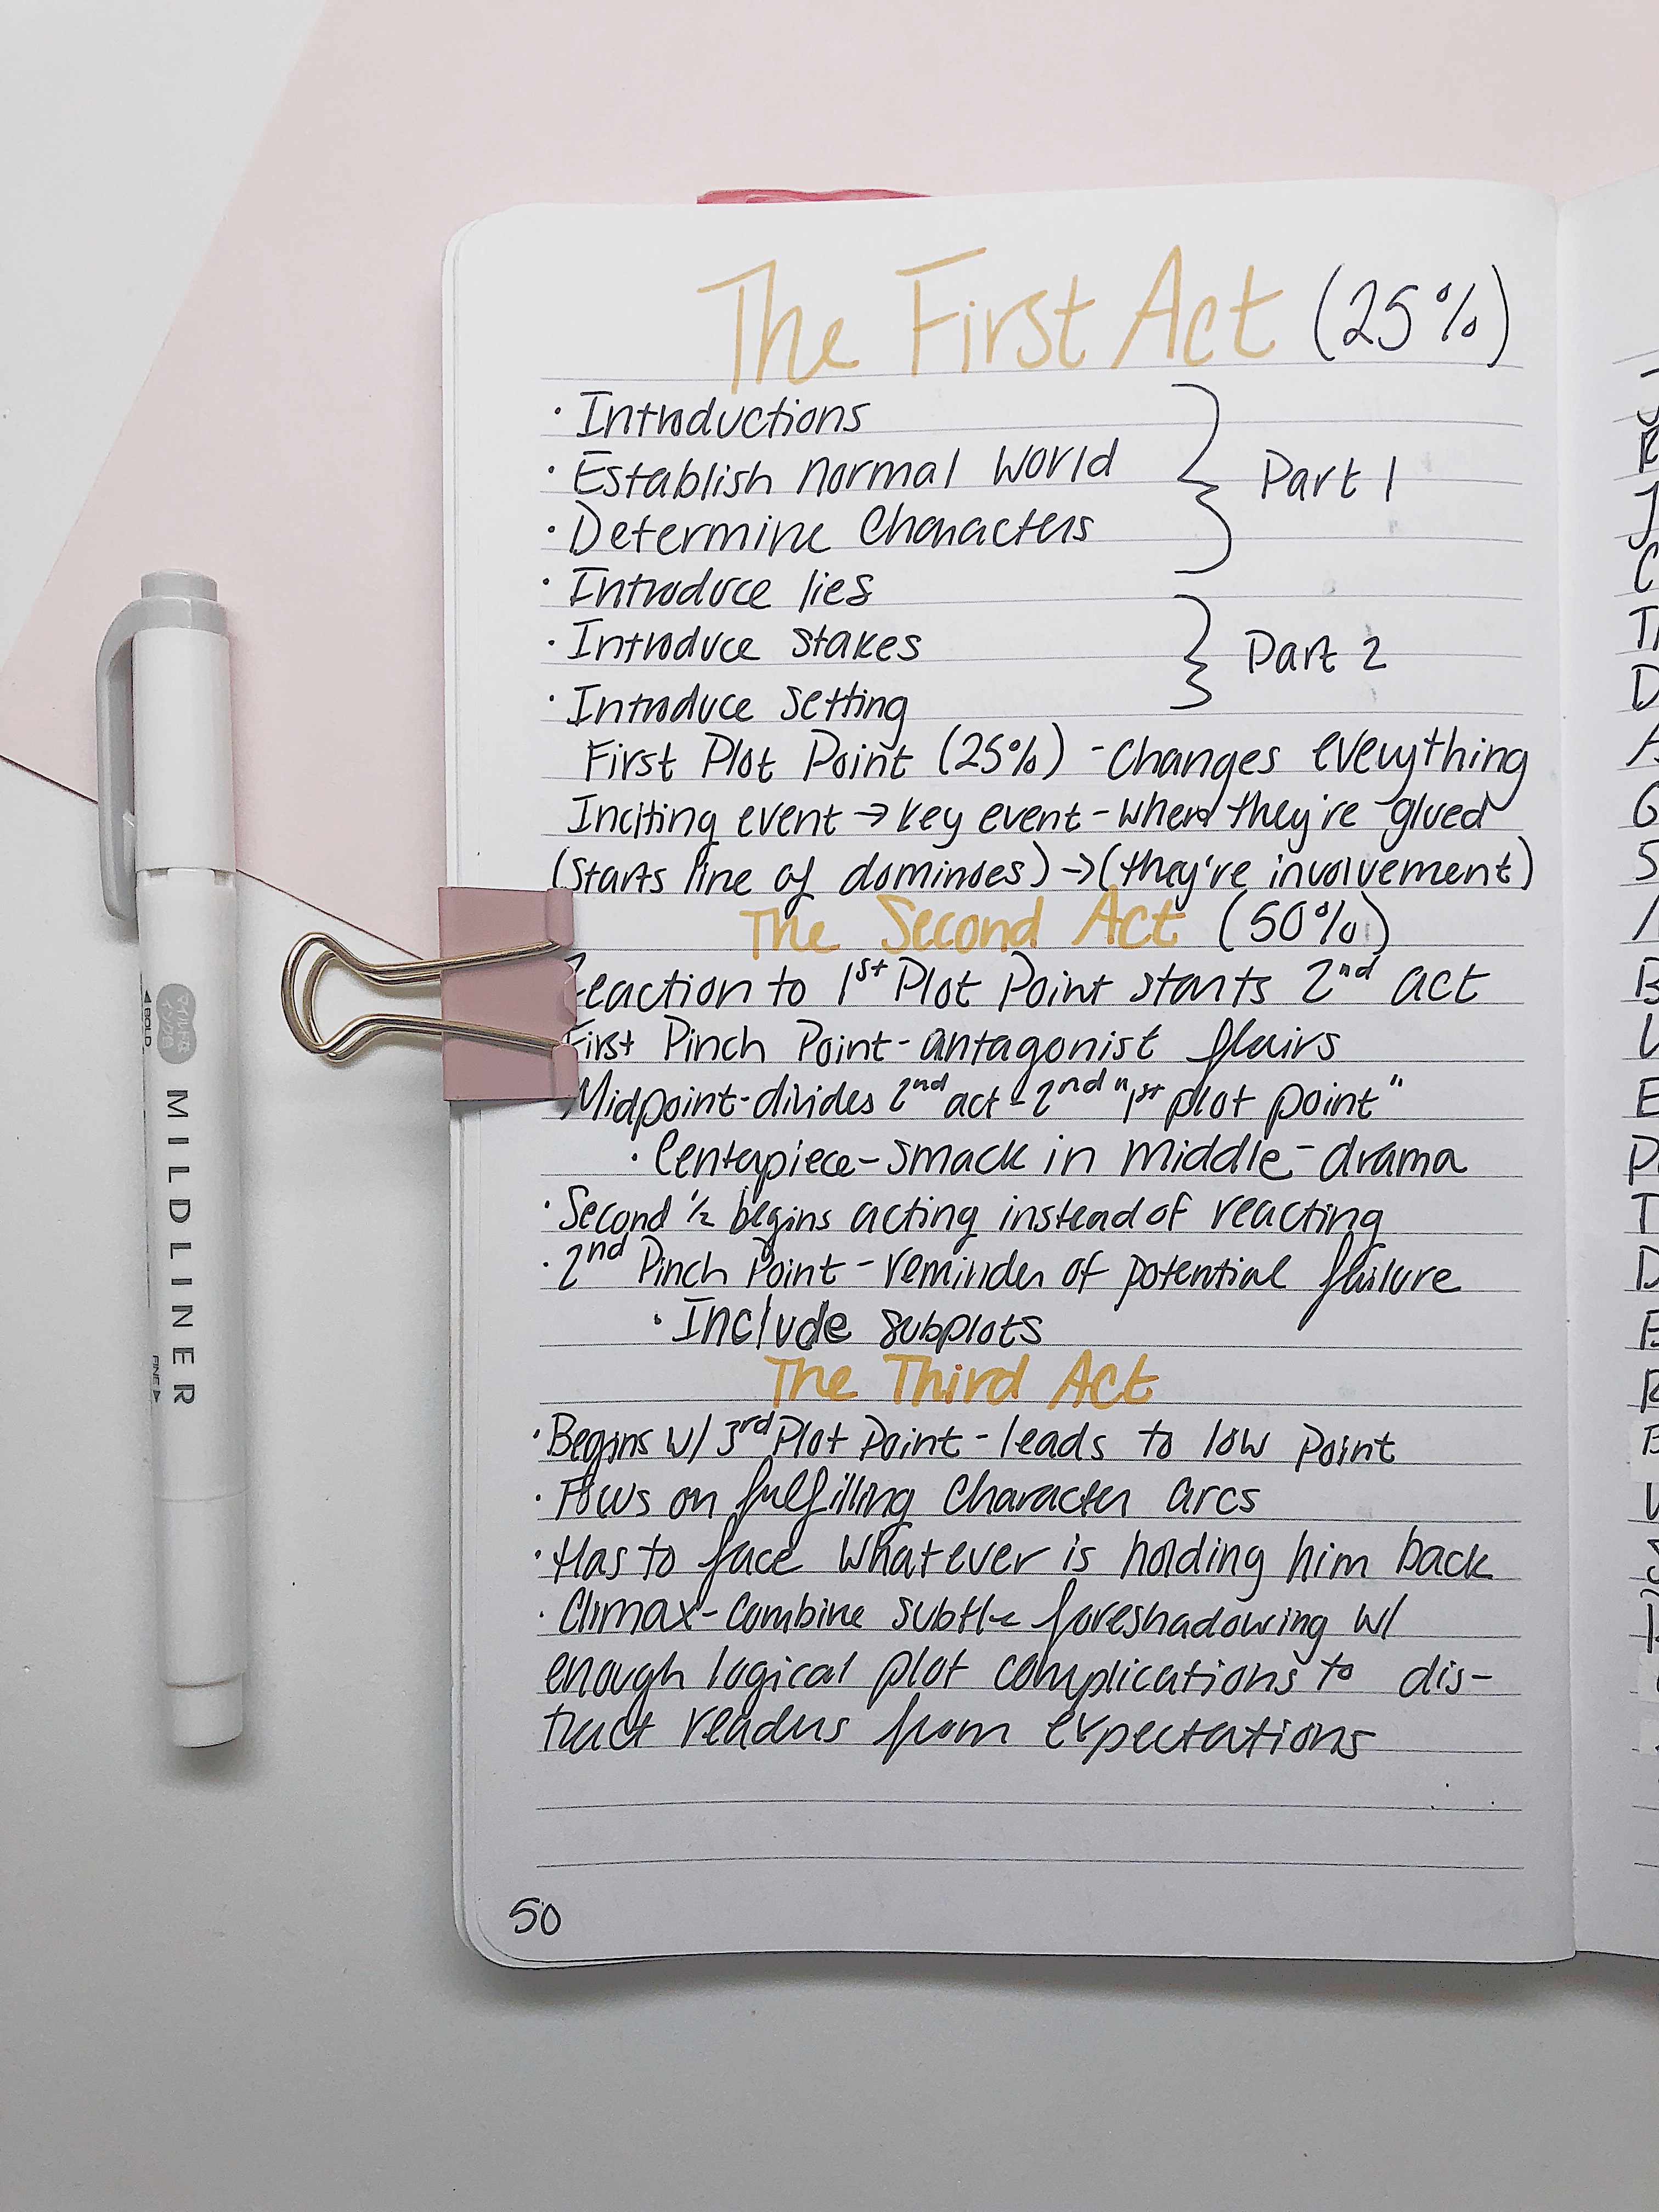 The First Act (25%)
· Introductions
· Establish normal world
· Determine characters
Part 1
· Introduce lies
· Introduce stakes
· Introduce setting
Part 2
First Plot Point (25%) - changes everything
Inciting event → key event - when they're glued
(starts line of dominoes) → (they're involvement)
The Second Act (50%)
Reaction to 1st Plot Point starts 2nd act
First Pinch Point - antagonist flairs
Midpoint - divides 2nd act - 2nd "1st plot point"
· Centerpiece - smack in middle - drama
· Second 1/2 begins acting instead of reacting
· 2nd Pinch Point - reminder of potential failure
· Include subplots
The Third Act
· Begins w/ 3rd Plot Point - leads to low point
· Focus on fulfilling character arcs
· Has to face whatever is holding him back
· Climax - combine subtle foreshadowing w/
enough logical plot complications to dis-
tract readers from expectations
50
MILDLINER
◀ BOLD
FINE ▶